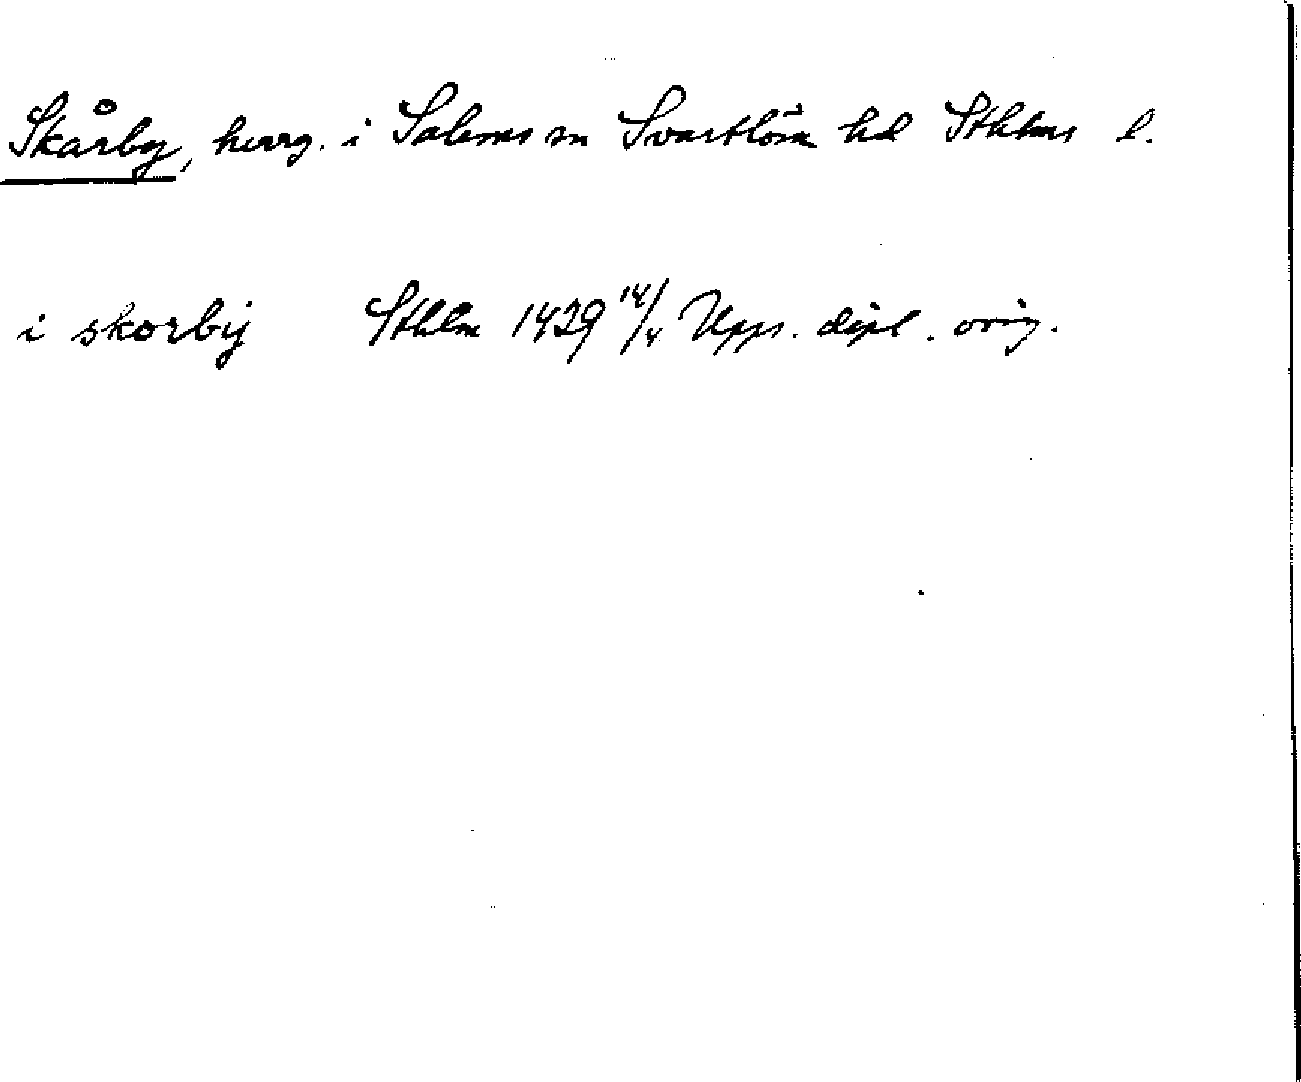 Skårby, herrg. i Salems sn Svartlösa hd Sthlms l.
i skorbij Sthlm 1439 14/4 Upps. dipl. orig.